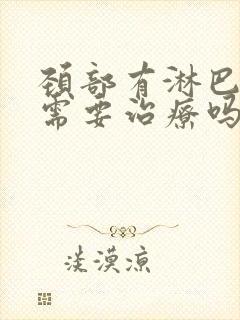 颈部有淋巴
需要治疗吗
淡漠凉